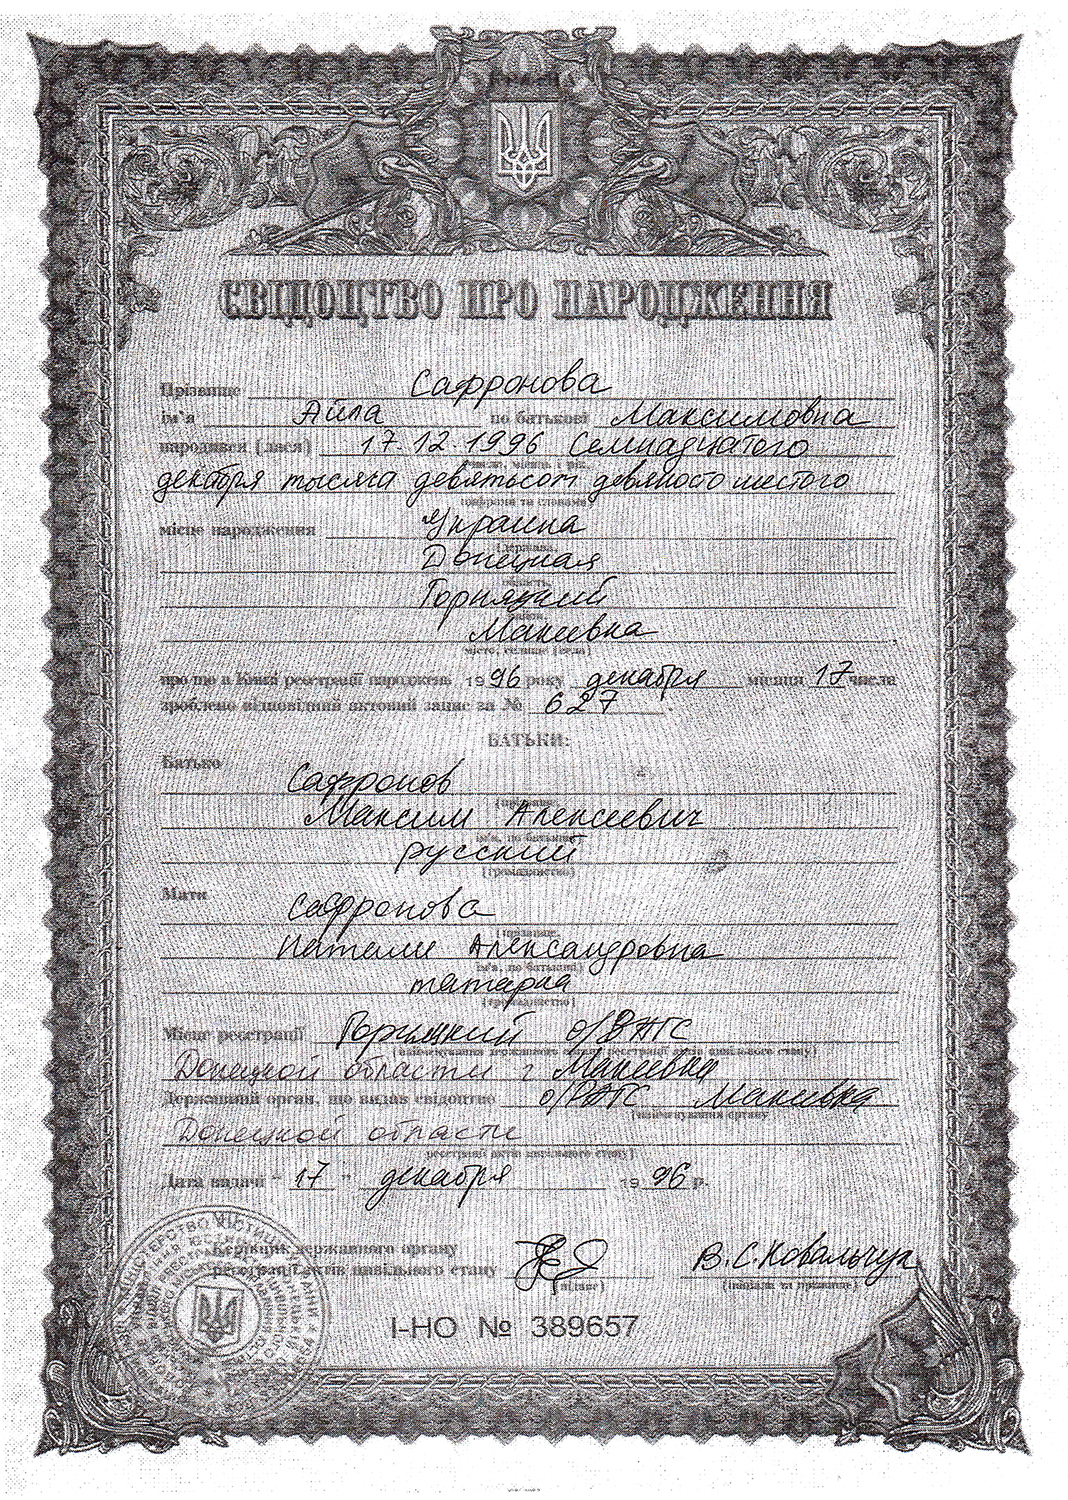 СВІДОЦТВО ПРО НАРОДЖЕННЯ
Прізвище Сафронова
ім'я Айла по батькові Максимовна
народився (лася) 17.12.1996 Семнадцатого
(число, місяць і рік,
декабря тысяча девятьсот девяносто шестого
цифрами та словами)
місце народження Украина
(держава,
Донецкая
область,
Горняцкий
Макеевка
місто, селище (село)
про що в Книзі реєстрації народжень 1996 року декабря місяця 17 числа
зроблено відповідний актовий запис за № 627
БАТЬКИ:
Батько
Сафронов
(прізвище,
Максим Алексеевич
ім'я, по батькові)
русский
(громадянство)
Мати
Сафронова
(прізвище,
Натали Александровна
ім'я, по батькові)
татарка
(громадянство)
Місце реєстрації Горняцкий о/ЗАГС
(найменування державного органу реєстрації актів цивільного стану)
Донецкой области г Макеевка
Державний орган, що видав свідоцтво о/РАГС Макеевка
(найменування органу
Донецкой области
реєстрації актів цивільного стану)
Дата видачі " 17 " декабря 1996 р.
Керівник державного органу
реєстрації актів цивільного стану В.С.Ковальчук
(підпис) (ініціали та прізвище)
І-НО № 389657